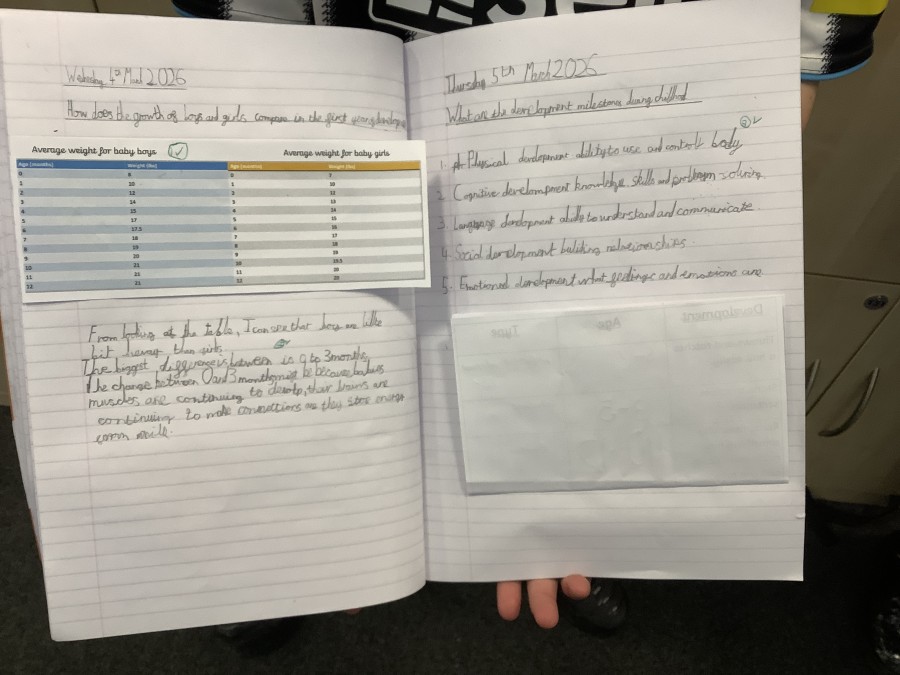 Wednesday 4th March 2026
How does the growth of boys and girls compare in the first year
Average weight for baby boys
Average weight for baby girls
Age (months) Weight (lbs) Age (months) Weight (lbs)
0 8 0 7
1 10 1 10
2 12 2 12
3 14 3 13
4 15 4 14
5 17 5 15
6 17.5 6 16
7 18 7 17
8 19 8 18
9 20 9 19
10 21 10 19.5
11 21 11 20
12 21 12 20
From looking at the table, I can see that boys are
bit than girls.
The biggest between is 0 to 3 months,
the change between 0 and 3 months be because
muscles are continuing to their brains are
continuing to make connections as they store energy
milk.
Thursday 5th March 2026
What are the development milestones during
1. Physical development ability to use and control body
2. Cognitive development knowledge, skills and problem solving
3. Language development able to understand and communicate.
4. Social development relationships.
5. Emotional development what feelings and emotions are
Development Age Type